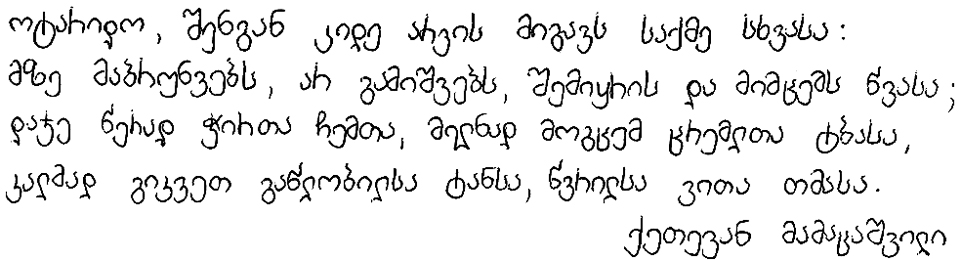 ოტარიდო, შენგან კიდე არვის მიგავს საქმე სხვასა:
მზე მაბრუნვებს, არ გამიშვებს, შემიყრის და მიმცემს წვასა;
დაჯე წერად ჭირთა ჩემთა, მელნად მოგცემ ცრემლთა ტბასა,
კალმად გიკვეთ გაწლობილსა ტანსა, წვრილსა ვითა თმასა.
ქეთევან მამაცაშვილი